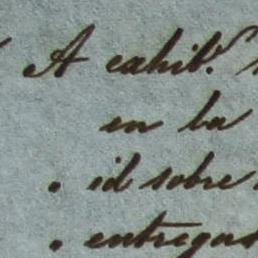 A cahil.º
en la
. id sobre
. entregas